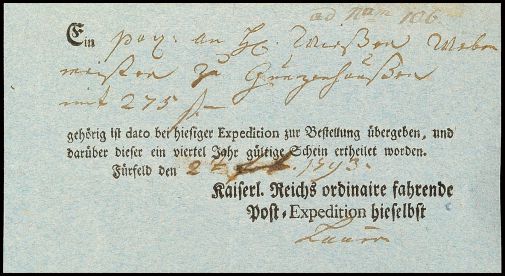 ad Num 106
Ein paq: an H: Meißen Weber
meister zu Gunzenhaußen
mit 275 f
gehörig ist dato bei hiesiger Expedition zur Bestellung übergeben, und
darüber dieser ein viertel Jahr gültige Schein ertheilet worden.
Fürfeld den 1793.
Kaiserl. Reichs ordinaire fahrende
Post-Expedition hieselbst